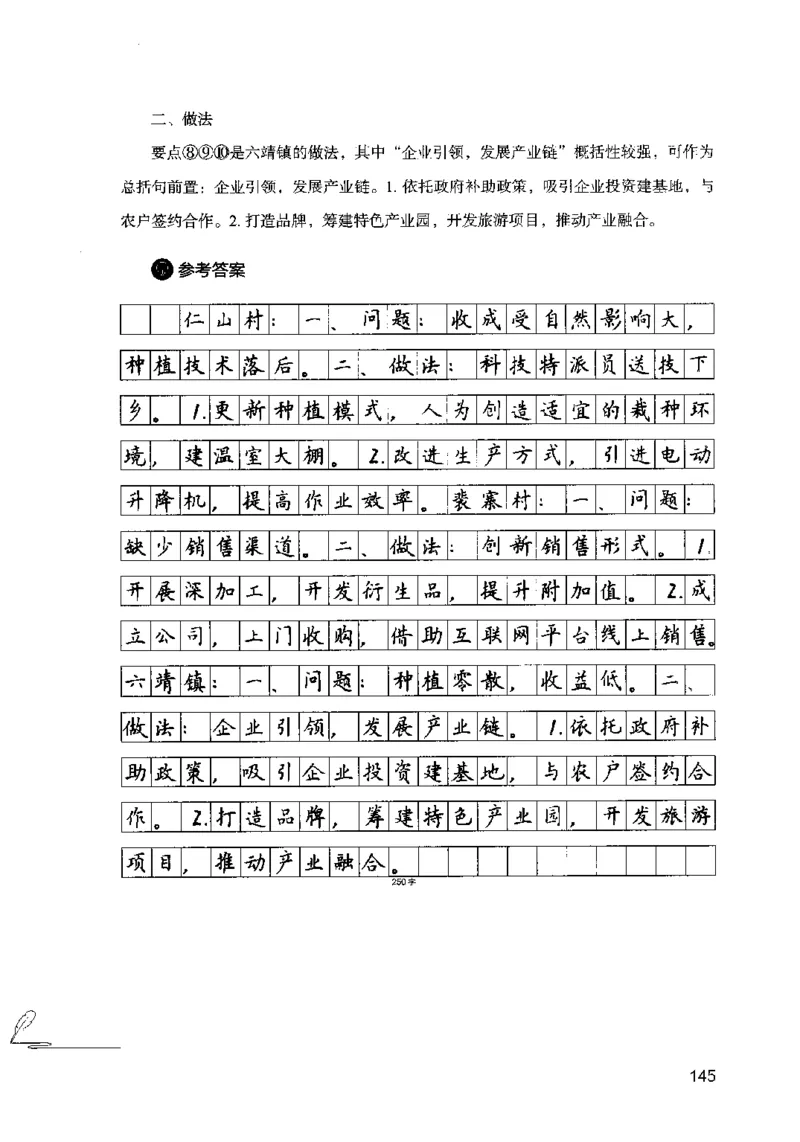 二、做法
要点⑧⑨⑩是六靖镇的做法，其中“企业引领，发展产业链”概括性较强，可作为
总括句前置：企业引领，发展产业链。1. 依托政府补助政策，吸引企业投资建基地，与
农户签约合作。2. 打造品牌，筹建特色产业园，开发旅游项目，推动产业融合。
参考答案
仁山村：一、问题：收成受自然影响大，
种植技术落后。二、做法：科技特派员送技下
乡。1.更新种植模式，人为创造适宜的栽种环
境，建温室大棚。2.改进生产方式，引进电动
升降机，提高作业效率。裴寨村：一、问题：
缺少销售渠道。二、做法：创新销售形式。1.
开展深加工，开发衍生品，提升附加值。2.成
立公司，上门收购，借助互联网平台线上销售。
六靖镇：一、问题：种植零散，收益低。二、
做法：企业引领，发展产业链。1.依托政府补
助政策，吸引企业投资建基地，与农户签约合
作。2.打造品牌，筹建特色产业园，开发旅游
项目，推动产业融合。
250字
145